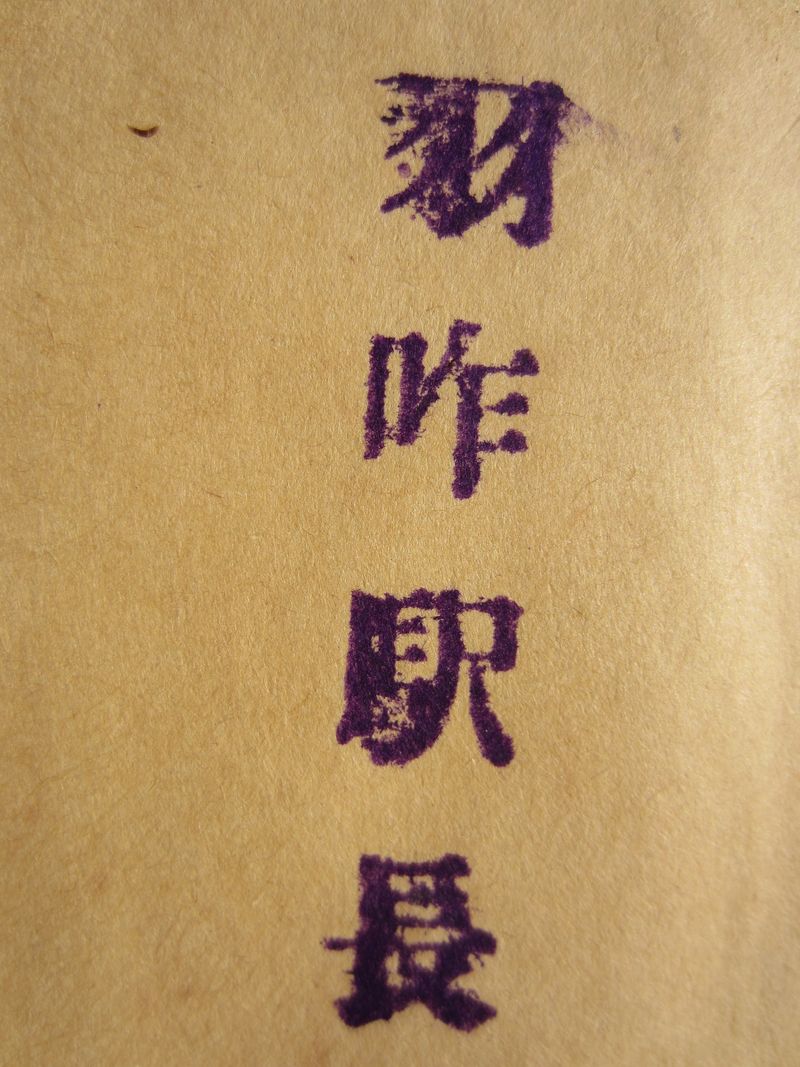 羽咋駅長